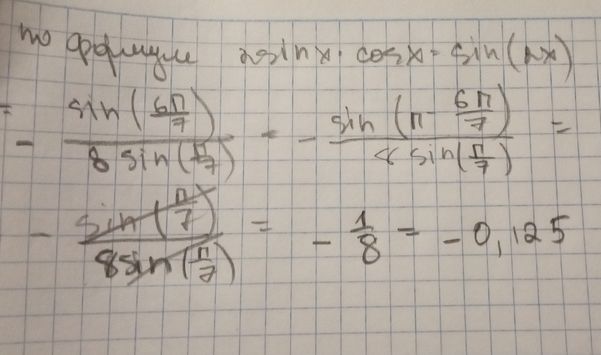 по формуле 2sinx · cosx = sin(2x)
= - sin(6π/7) / 8 sin(π/7) = - sin(π - 6π/7) / 8 sin(π/7) =
- sin(π/7) / 8sin(π/7) = - 1/8 = -0,125